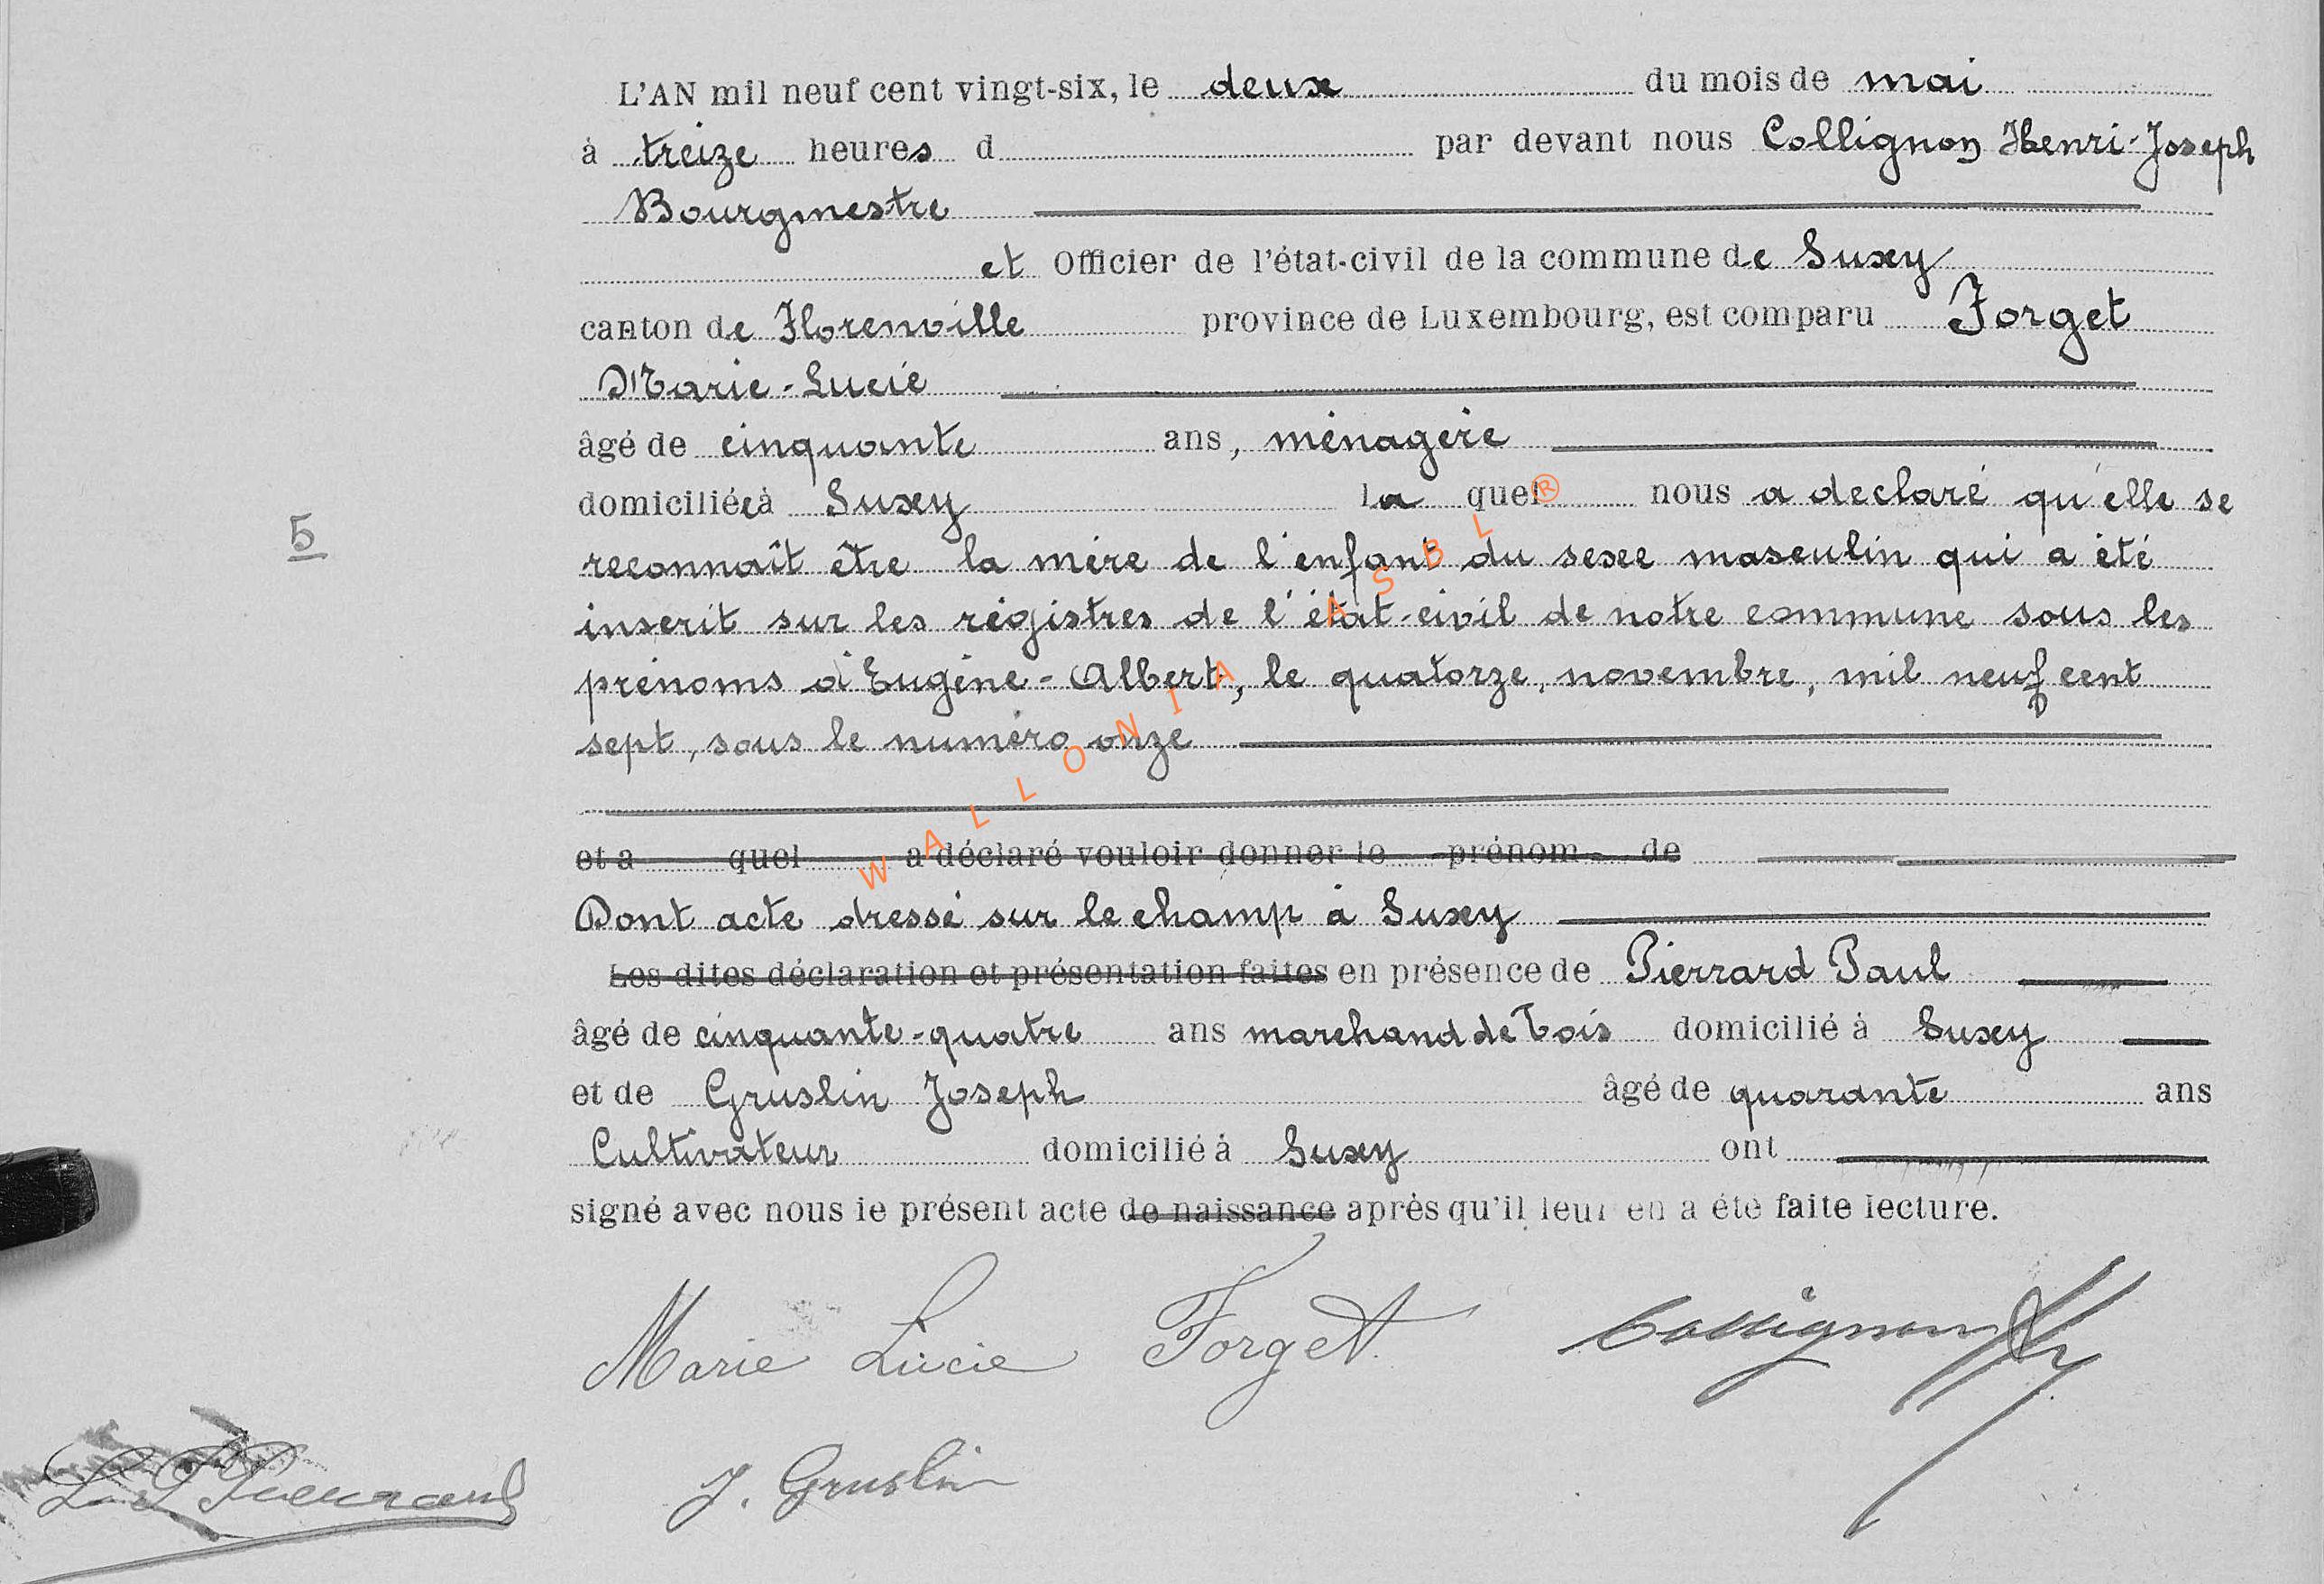 L'AN mil neuf cent vingt-six, le deux du mois de mai
à treize heures d par devant nous Collignon Henri-Joseph
Bourgmestre
et Officier de l'état-civil de la commune de Suxy
canton de Florenville province de Luxembourg, est comparu Forget
Marie-Lucie
âgé de cinquante ans, ménagère
domiciliée à Suxy la quel nous a déclaré qu'elle se
5
reconnaît être la mère de l'enfant du sexe masculin qui a été
inscrit sur les régistres de l'état-civil de notre commune sous les
prénoms d'Eugène-Albert, le quatorze, novembre, mil neuf cent
sept, sous le numéro onze
et a quel a déclaré vouloir donner le prénom de
Dont acte dressé sur le champ à Suxy
Les dites déclaration et présentation faites en présence de Pierrard Paul
âgé de cinquante-quatre ans marchand de bois domicilié à Suxy
et de Gruslin Joseph âgé de quarante ans
Cultivateur domicilié à Suxy ont
signé avec nous le présent acte de naissance après qu'il leur en a été faite lecture.
Marie Lucie Forget Collignon
J. Gruslin
WALLONIA ASBL ®